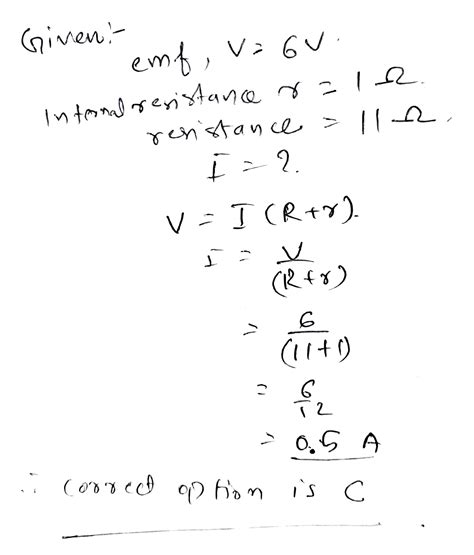 Given:-
emf, V = 6V.
Internal resistance r = 1 Ω.
resistance = 11 Ω.
I = ?
V = I (R+r).
I = V/(R+r)
= 6/(11+1)
= 6/12
= 0.5 A
∴ Correct option is C